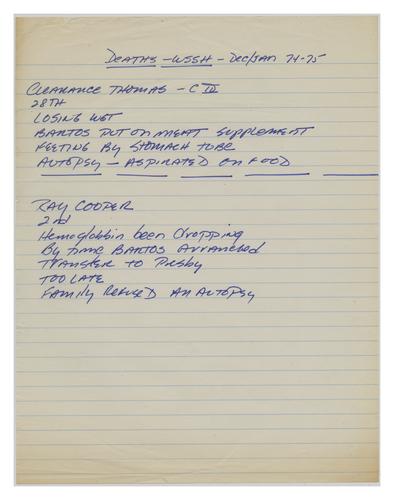 DEATHS - WSSH - Dec/Jan 74-75
CLEARANCE THOMAS - C IV
28TH
LOSING WGT
BARTOS PUT ON MEAT supplement
FEETING By STOMACH TUBE
AUTOPSY - ASPIRATED ON FOOD
RAY COOPER
2nd
Hemoglobbin been dropping
By time BARTOS Arranged
TRANSFER to Presby
TOO LATE
FAMILY REFUSED AN AUTOPSY